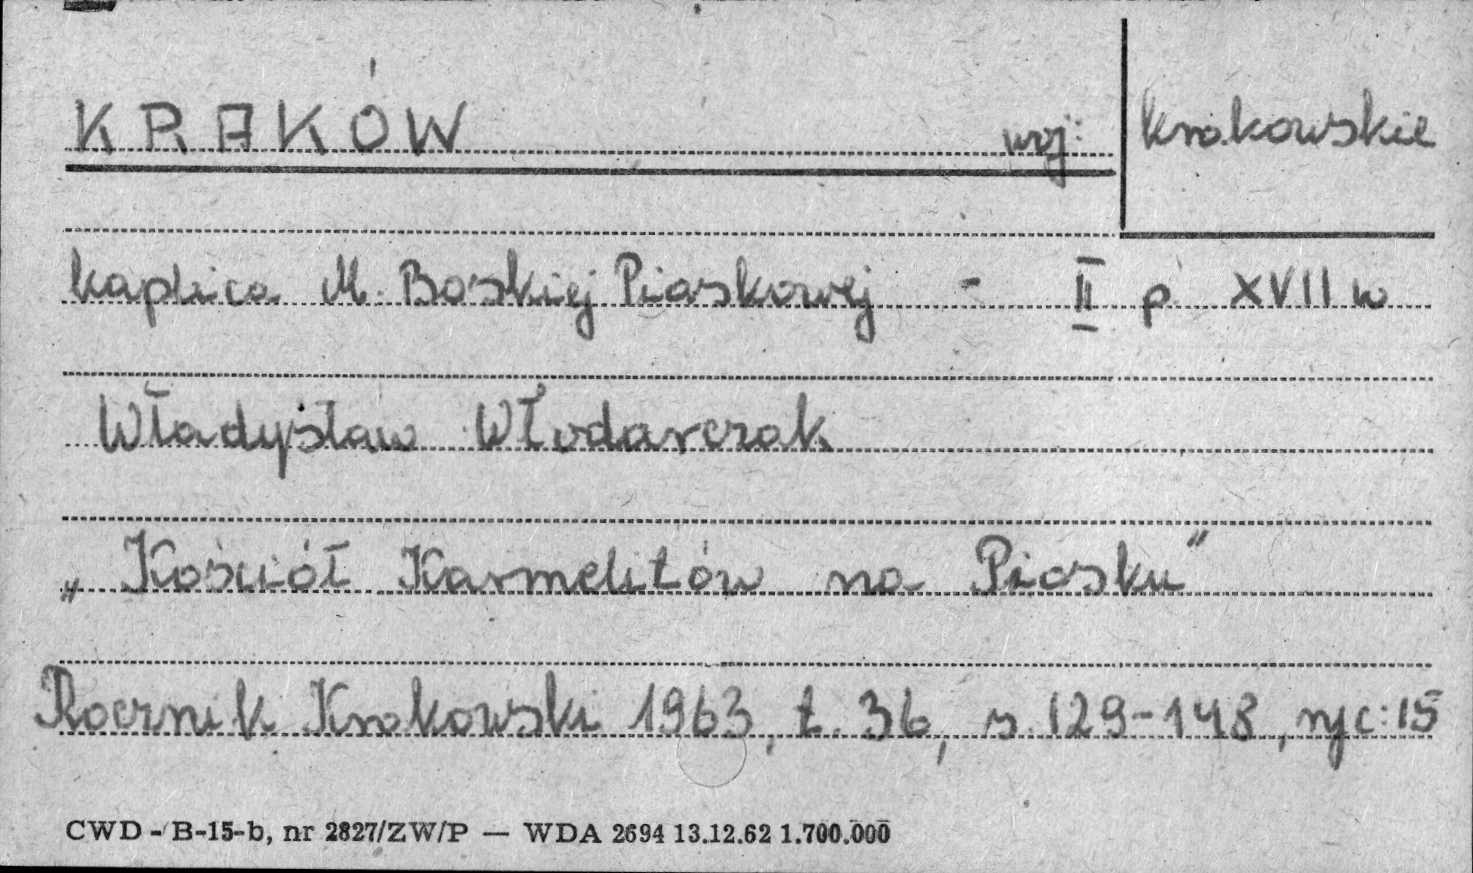 KRAKÓW woj: krakowskie
kaplica M. Boskiej Piaskowej - II p XVII w
Władysław Włodarczak
„Kościół Karmelitów na Piasku”
Rocznik Krakowski 1963, t. 36, s. 129-148, ryc: 15
CWD - B-15-b, nr 2827/ZW/P — WDA 2694 13.12.62 1.700.000